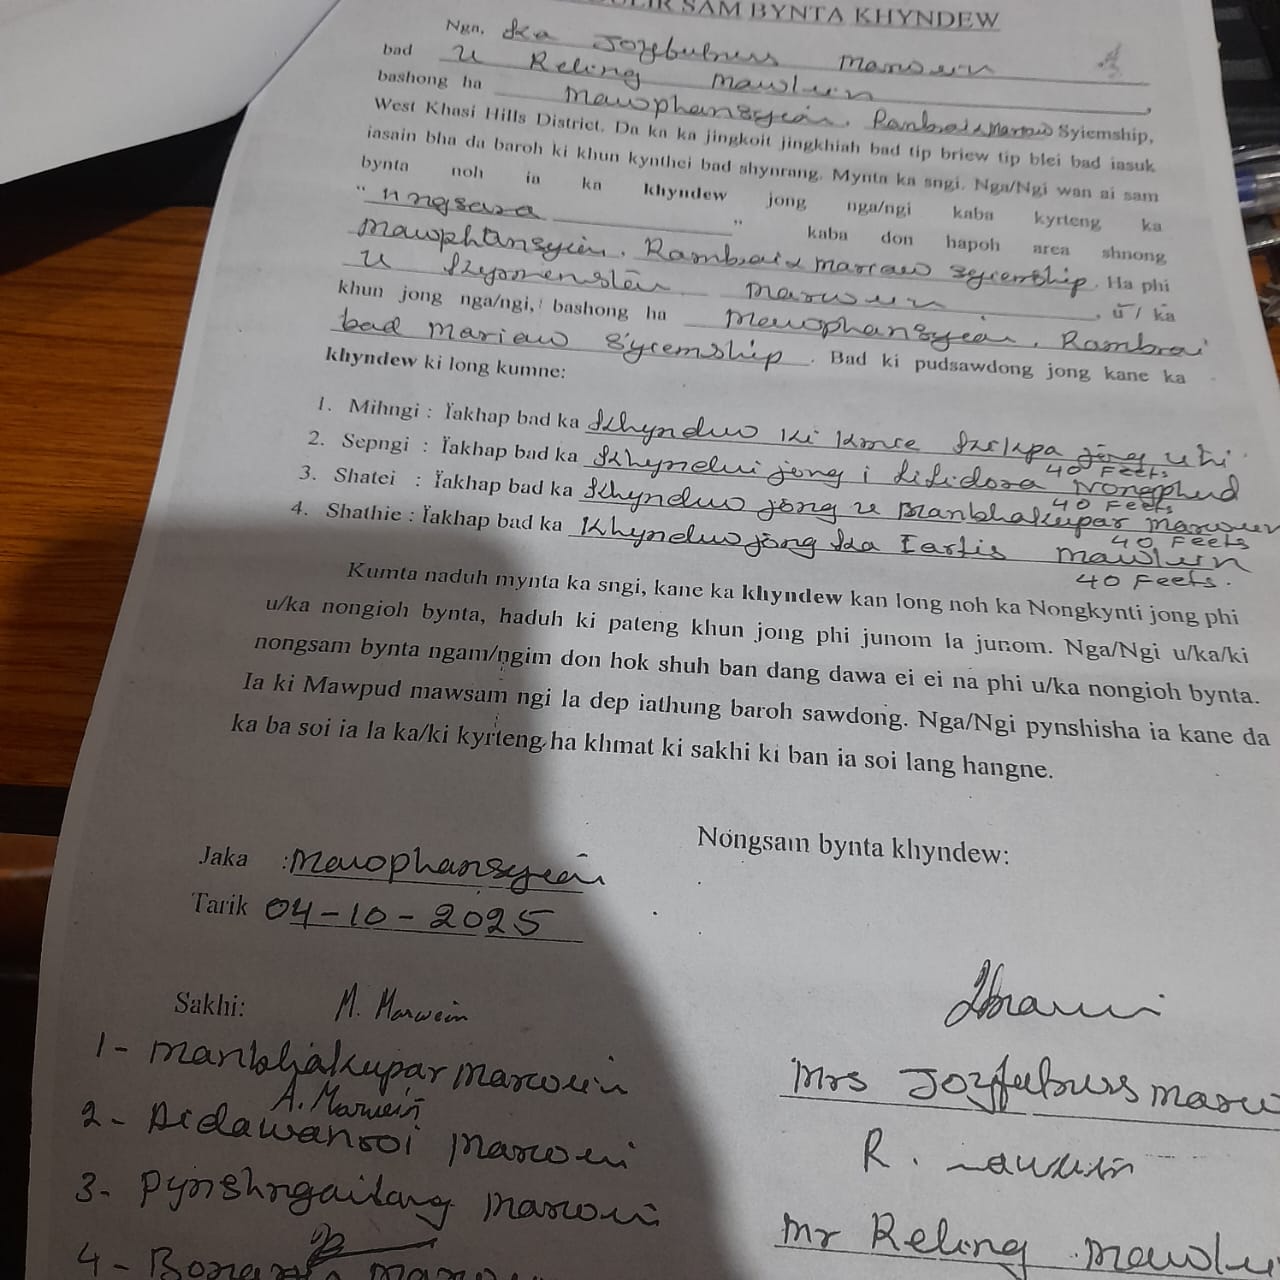 SAM BYNTA KHYNDEW
Nga, Ka Marwein
bad U Reling Mawlein
bashong ha Mawphansyiein, Rambrai & Mariaw Syiemship,
West Khasi Hills District. Da ka ka jingkoit jingkhiah bad tip briew tip blei bad iasuk
iasain bha da baroh ki khun kynthei bad shynrang. Mynta ka sngi, Nga/Ngi wan ai sam
bynta noh ia ka khyndew jong nga/ngi kaba kyrteng ka
" Nngsara " kaba don hapoh area shnong
Mawphansyiein, Rambrai & Mariaw Syiemship. Ha phi
U Marwein, ū / ka
khun jong nga/ngi, bashong ha Mawphansyiein, Rambrai
bad Mariaw Syiemship. Bad ki pudsawdong jong kane ka
khyndew ki long kumne:
1. Mihngi : Ïakhap bad ka Khyndew ki kmie jong u hi
40 Feets
2. Sepngi : Ïakhap bad ka Khyndew jong i Nongphud
40 Feets
3. Shatei : Ïakhap bad ka Khyndew jong u Manbhakupar Marwein
40 Feets
4. Shathie : Ïakhap bad ka Khyndew jong ka Mawlein
40 Feets.
Kumta naduh mynta ka sngi, kane ka khyndew kan long noh ka Nongkynti jong phi
u/ka nongioh bynta, haduh ki pateng khun jong phi junom la junom. Nga/Ngi u/ka/ki
nongsam bynta ngam/ngim don hok shuh ban dang dawa ei ei na phi u/ka nongioh bynta.
Ia ki Mawpud mawsam ngi la dep iathung baroh sawdong. Nga/Ngi pynshisha ia kane da
ka ba soi ia la ka/ki kyrteng ha khmat ki sakhi ki ban ia soi lang hangne.
Nongsam bynta khyndew:
Jaka : Mawphansyiein
Tarik 04-10-2025
Sakhi: M. Marwein
1- Manbhakupar Marwein
A. Marwein
2- Aidawansoi Marwein
3- Pynshngaitang Marwein
4-
Mrs
R.
Mr Reling